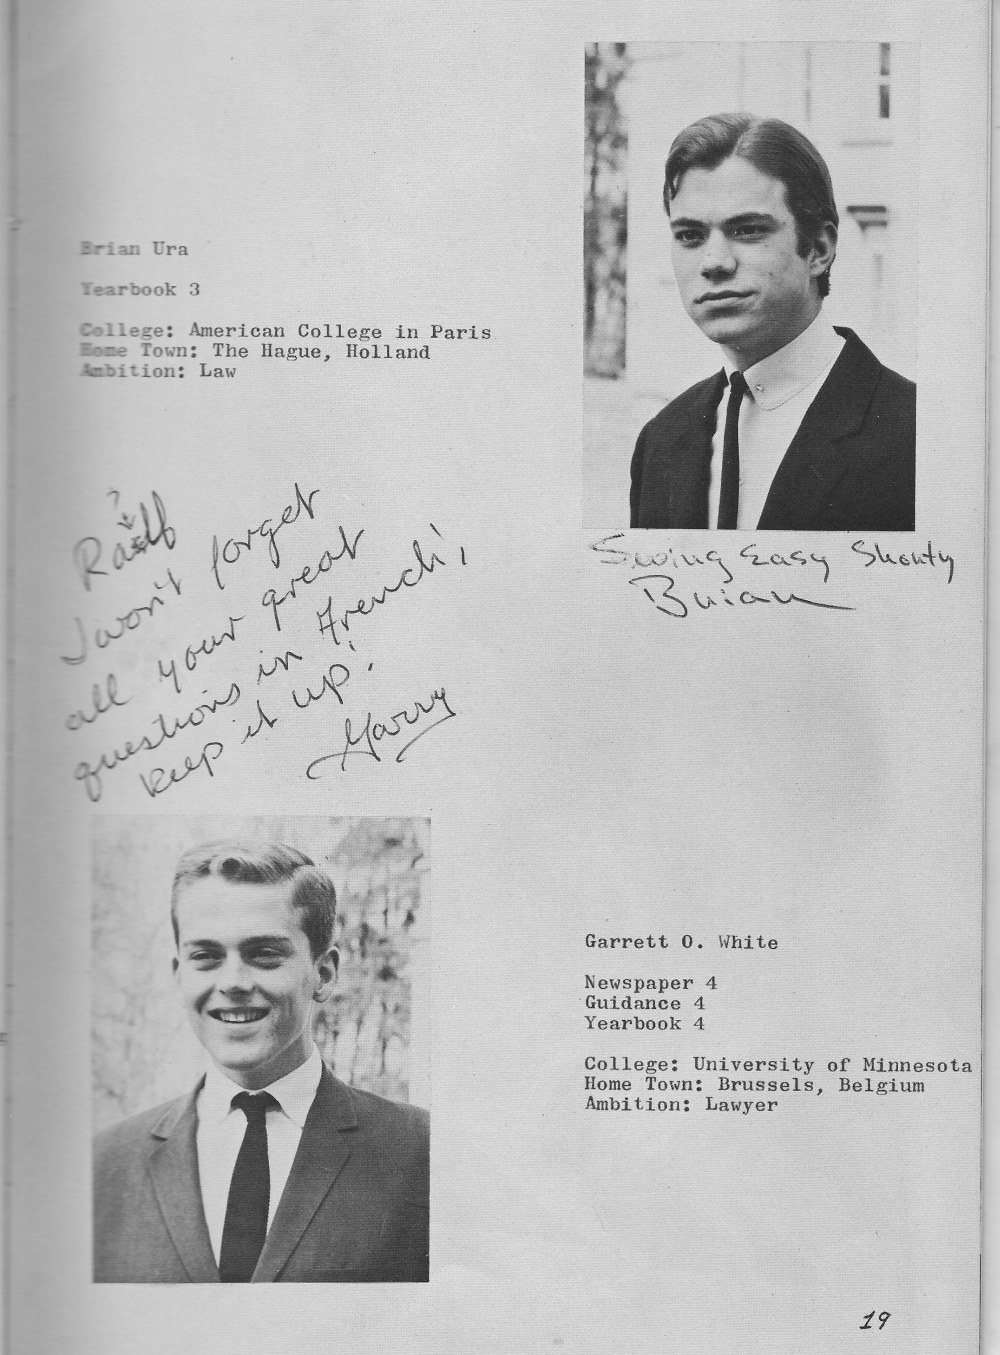 Brian Ura
Yearbook 3
College: American College in Paris
Home Town: The Hague, Holland
Ambition: Law
Swing Easy Shorty
Brian
?
I won't forget
all your great
questions in French!,
keep it up!
Garry
Garrett O. White
Newspaper 4
Guidance 4
Yearbook 4
College: University of Minnesota
Home Town: Brussels, Belgium
Ambition: Lawyer
19